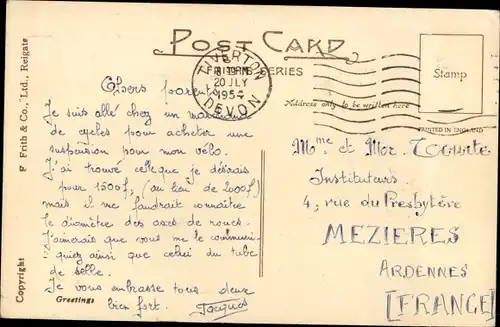 POST CARD
FRITH'S SERIES
TIVERTON
20 JLY
1954
DEVON
Stamp
Address only to be written here
PRINTED IN ENGLAND
F Frith & Co., Ltd., Reigate
Copyright
Greetings
Chers parents
Je suis allé chez un marchand
de cycles pour acheter une
suspension pour mon vélo.
J'ai trouvé celle que je désirais
pour 1500f, (au lieu de 2000f)
mais il me faudrait connaître
le diamètre des axes de roues.
J'aimerais que vous me le communi-
quiez ainsi que celui du tube
de selle.
Je vous embrasse tous deux
bien fort. Jacques
Mme et Mor
Instituteurs
4, rue du Presbytère
MEZIERES
ARDENNES
[FRANCE]